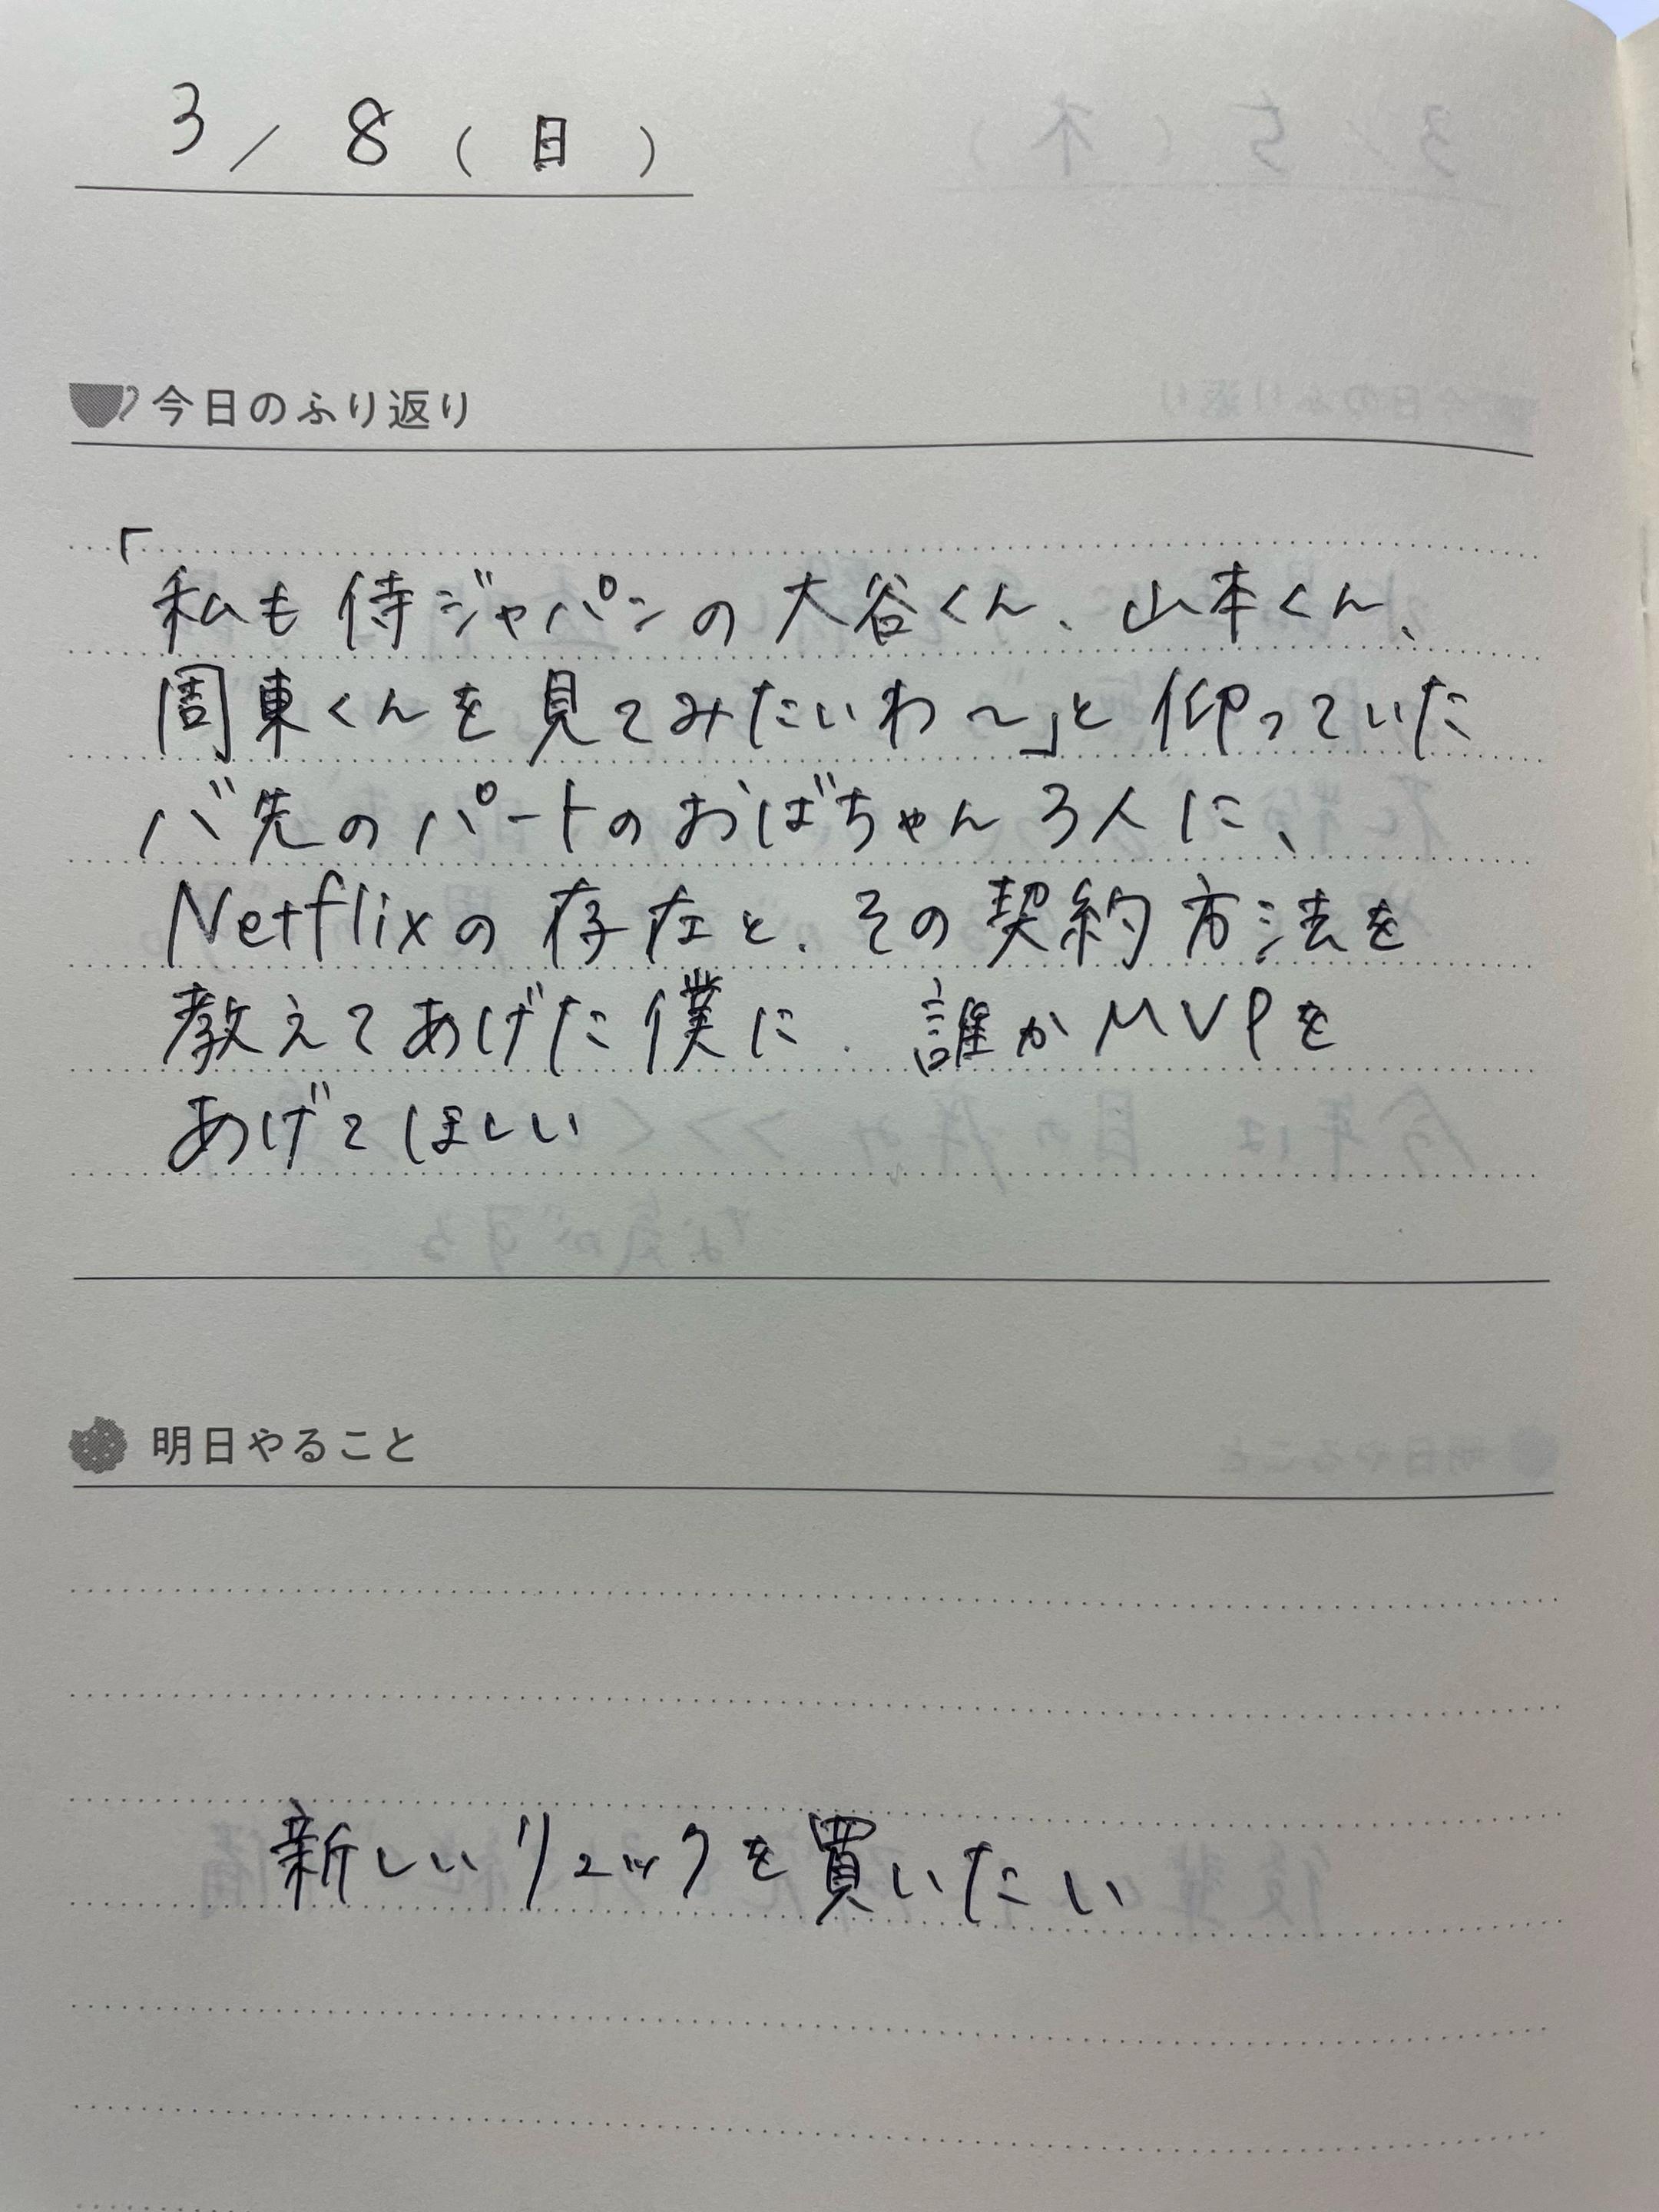 3/8(日)
今日のふり返り
「
私も侍ジャパンの大谷くん、山本くん、
周東くんを見てみたいわ〜」と仰っていた
バ先のパートのおばちゃん3人に、
Netflixの存在と、その契約方法を
教えてあげた僕に、誰かMVPを
あげてほしい
明日やること
新しいリュックを買いたい